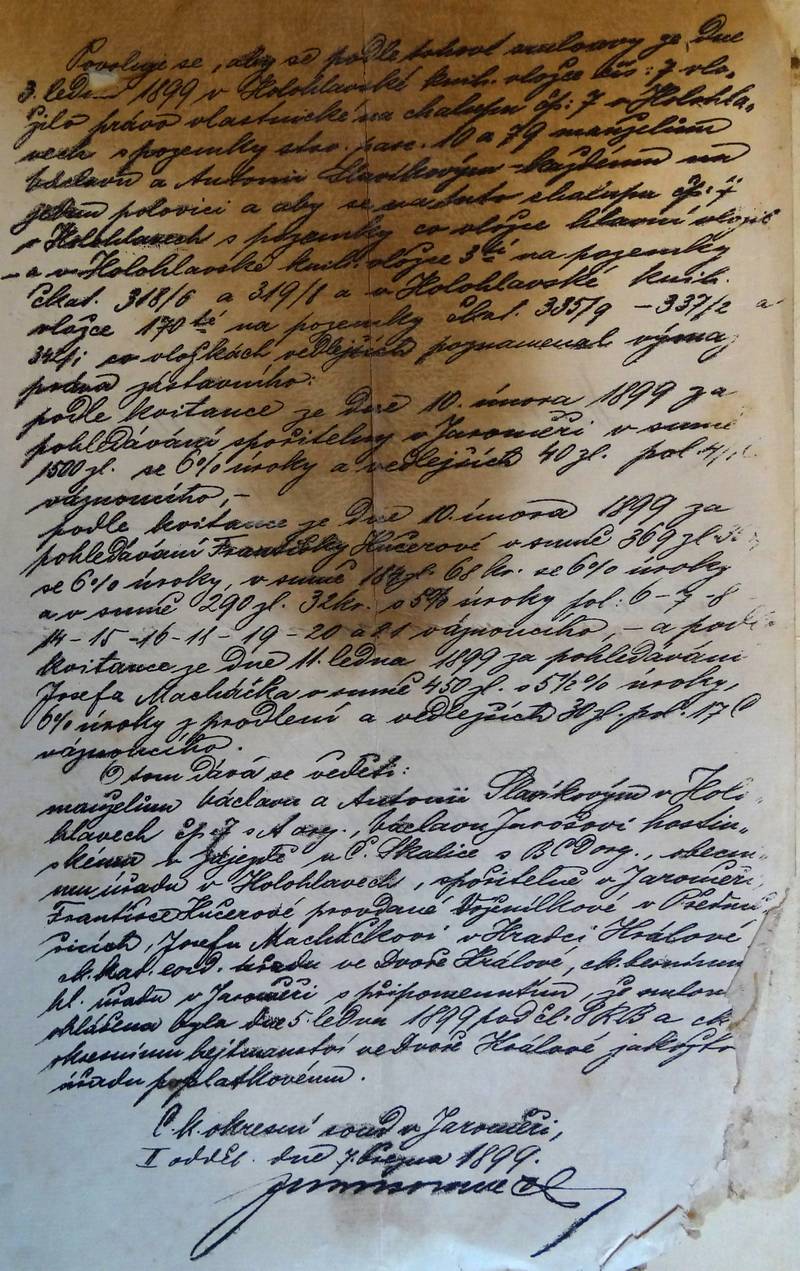 Povoluje se, aby se podle tohoto smlouvy ze dne
3. ledna 1899 v Holohlavské knih. vložce čís: 7 vlo-
žilo právo vlastnické na chalupu čp: 7 v Holohla-
vech s pozemky stav. parc. 10 a 79 manželům
Václavu a Antonii Slavíkovým – každému na
jednu polovici a aby se na tuto chalupu čp: 7
v Holohlavech s pozemky co vložce hlavní vložic
– a v Holohlavské knih. vložce 3té na pozemky
čkat. 318/6 a 319/8 a v Holohlavské knih.
vložce 170té na pozemky čkat. 335/9 – 337/2 a
co vložkách vedlejších poznamenal výmaz
práva zástavního:
podle kvitance ze dne 10. února 1899 za
pohledávání spořitelny v Jaroměři v sumě
1500 zl. se 6% úroky a vedlejších 40 zl. pol.
váznoucího, –
podle kvitance ze dne 10. února 1899 za
pohledávání Františky Kučerové v sumě 369 zl.
se 6% úroky, v sumě zl. 68 kr. se 6% úroky
a v sumě 290 zl. 32 kr. s 5% úroky pol: 6 – 7 – 8
14 – 15 – 16 – – 19 – 20 a 21 váznoucího, – a podle
kvitance ze dne 11. ledna 1899 za pohledávání
Josefa Macháčka v sumě 450 zl. s 5½% úroky,
6% úroky z prodlení a vedlejších 30 zl. pol. 17 C
váznoucího.
O tom dává se věděti:
manželům Václavu a Antonii Slavíkovým v Holo-
hlavech čp: 7 s A org., Václavu Jurošovi hostin-
skému v Zájezdě u Č. Skalice s B C D org., obecní-
mu úřadu v Holohlavech, spořitelně v Jaroměři,
Františce Kučerové provdané v
Josefu Macháčkovi v Hradci Králové
ck. kat. evid. úřadu ve Dvoře Králové, ck. bernímu
hl. úřadu v Jaroměři s připomenutím, že smlouva
ohlášena byla dne 5. ledna 1899 pod čl. a ck.
okresnímu hejtmanství ve Dvoře Králové jakožto
úřadu poplatkovému.
C. k. okresní soud v Jaroměři,
I odděl. dne 7. března 1899.